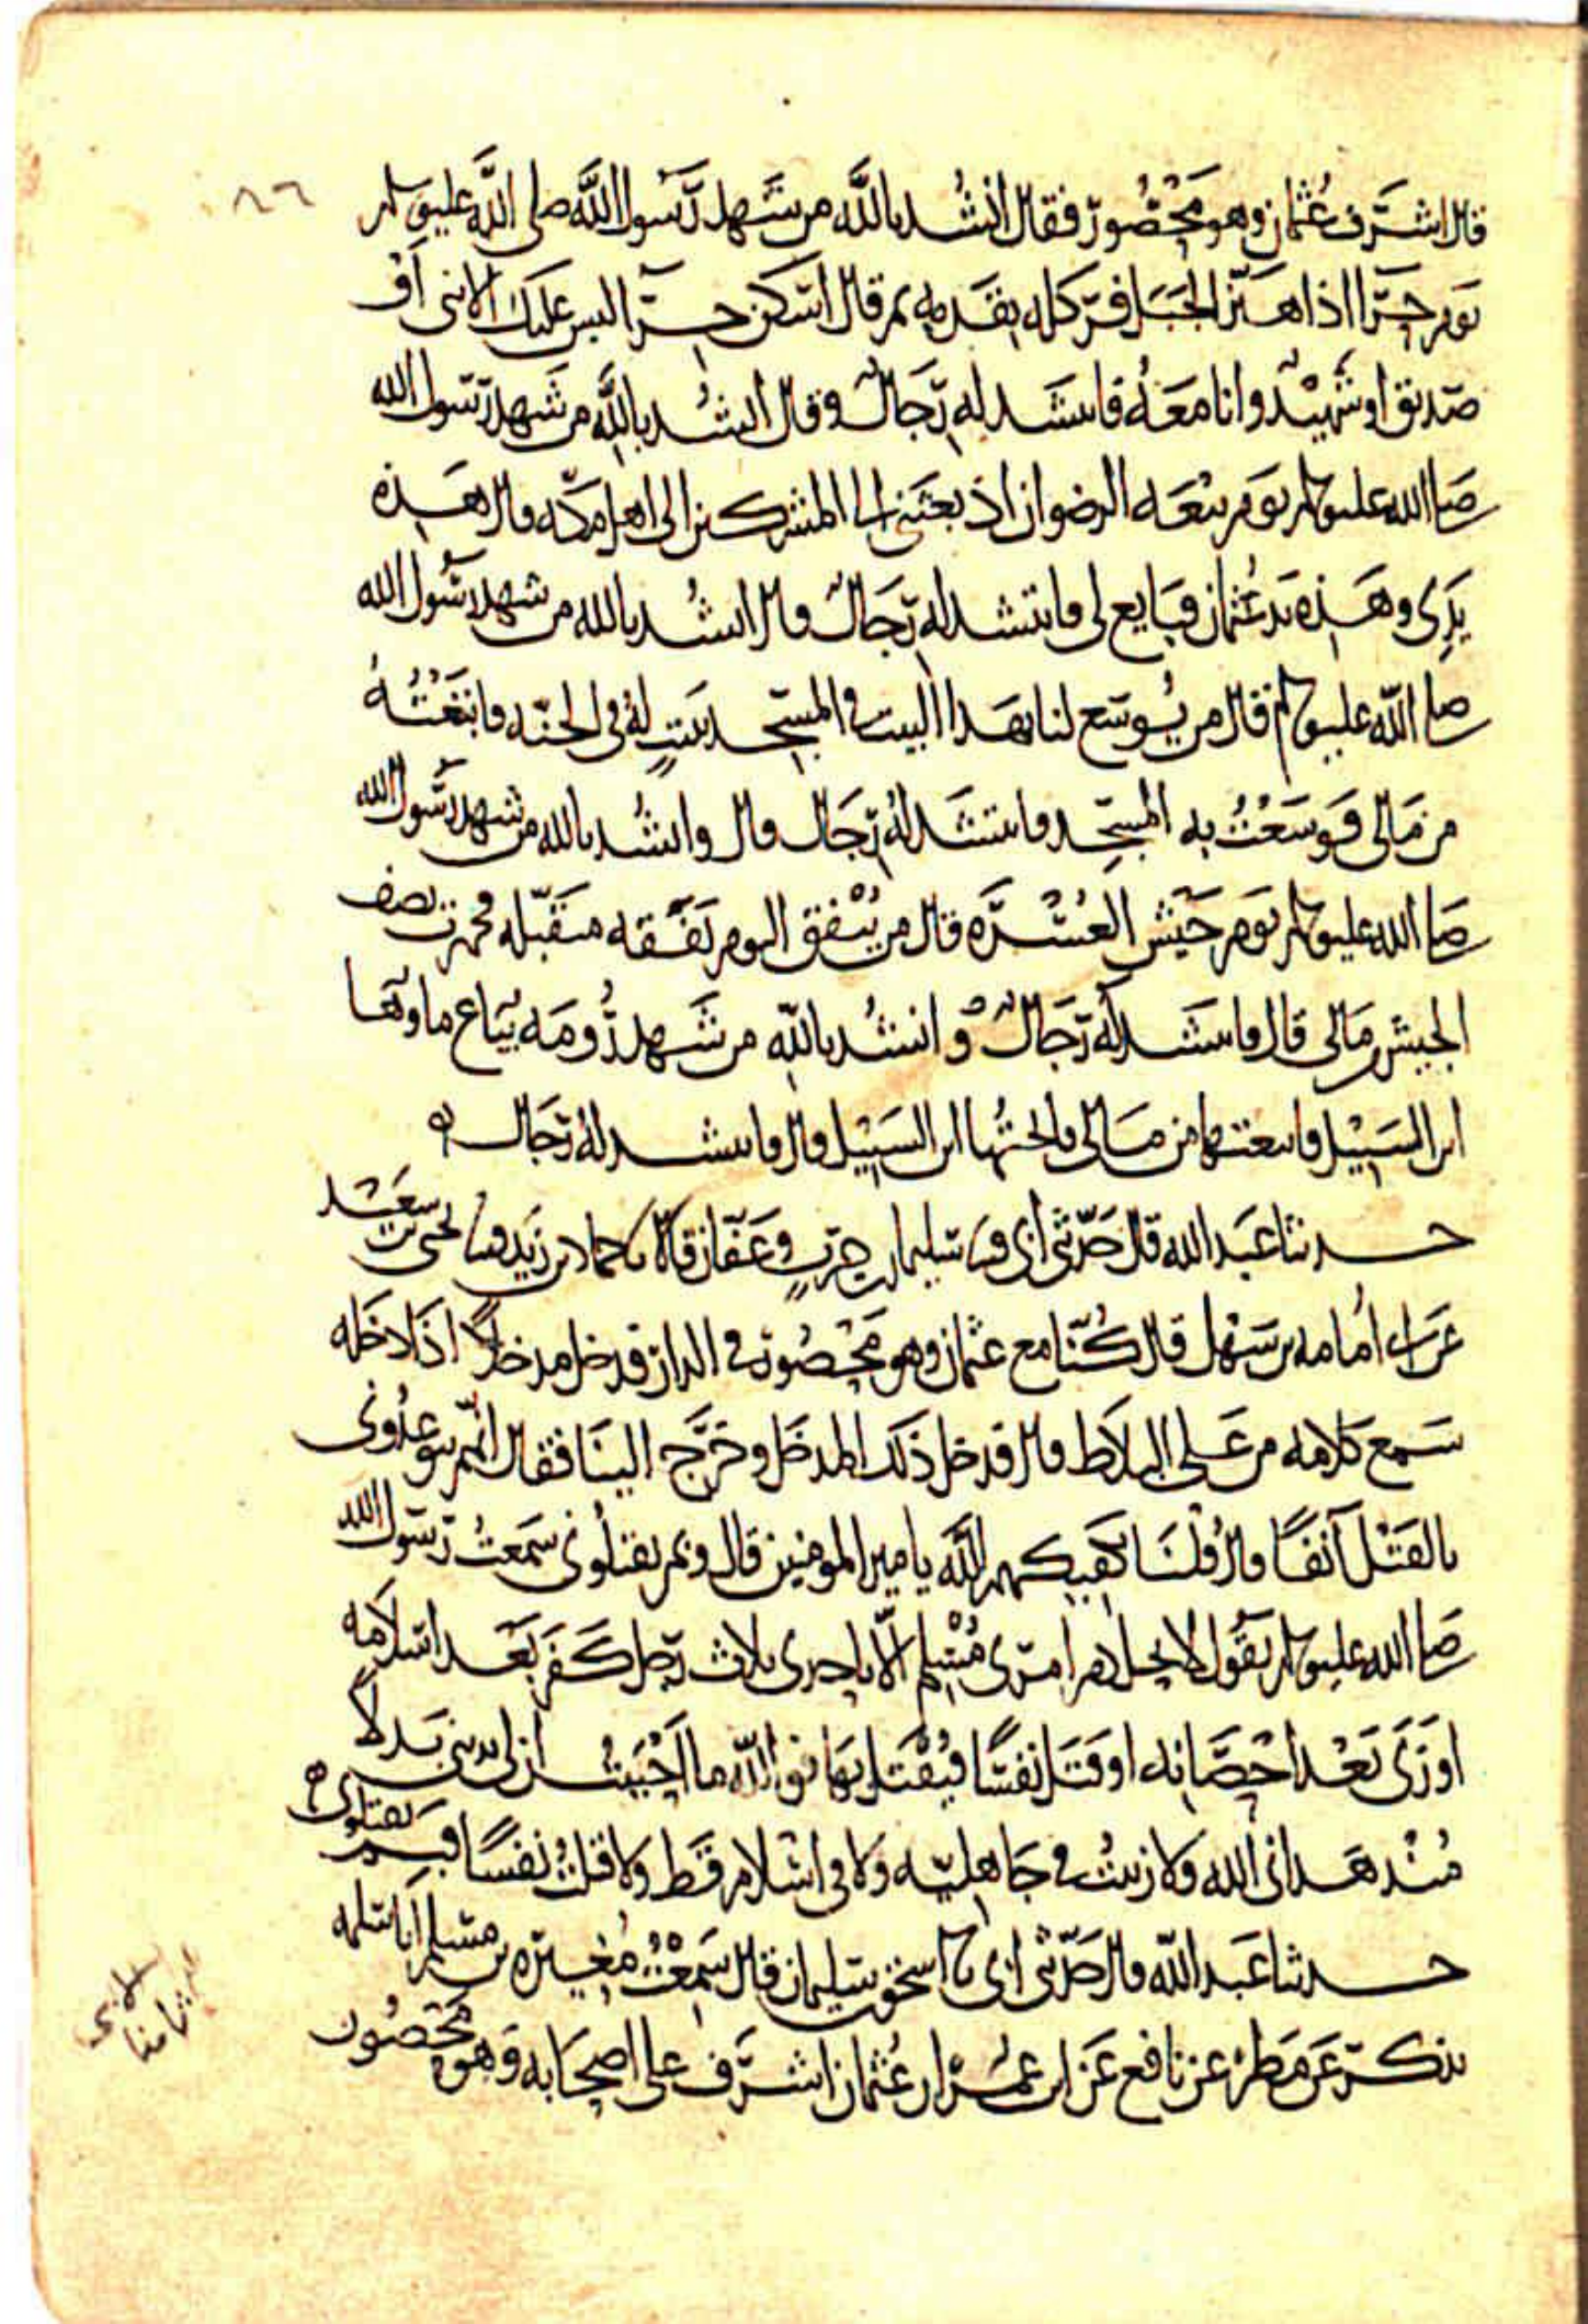 ٨٦
قال اشرف عثمان وهو محصور فقال انشد بالله من شهد رسول الله صلى الله عليه وسلم
يوم حرا اذ اهتز الجبل فركله بقدمه ثم قال اسكن حرا ليس عليك الا نبى او
صديق او شهيد وانا معه فانتشد له رجال وقال انشد بالله من شهد رسول الله
صلى الله عليه وسلم يوم بيعه الرضوان اذ بعثنى الى المشركين الى اهل مكه قال هذه
يدى وهذه يد عثمان فبايع لى فانتشد له رجال قال انشد بالله من شهد رسول الله
صلى الله عليه وسلم قال من يوسع لنا بهذا البيت فى المسجد ببيت له فى الجنه فابتعته
من مالى فوسعت به المسجد فانتشد له رجال قال وانشد بالله من شهد رسول الله
صلى الله عليه وسلم يوم جيش العسره قال من ينفق اليوم نفقه متقبله فجهزت نصف
الجيش مالى قال فانتشد له رجال وانشد بالله من شهد رومه يباع ماوها
ابن السبيل فابتعتها من مالى فابحتها ابن السبيل قال فانتشد له رجال ه
حدثنا عبد الله قال حدثنى ابى سليمان بن حرب وعفان قالا حماد بن زيد يحيى بن سعيد
عن ابى امامه بن سهل قال كنا مع عثمان وهو محصور فى الدار فدخل مدخلا اذا دخله
سمع كلامه من على البلاط قال فدخل ذلك المدخل وخرج الينا فقال انهم يتوعدونى
بالقتل آنفا قال قلنا يكفيكهم الله يا امير المومنين قال وبم يقتلونى سمعت رسول الله
صلى الله عليه وسلم يقول لا يحل دم امرى مسلم الا باحدى ثلاث رجل كفر بعد اسلامه
او زنى بعد احصانه او قتل نفسا فيقتل بها فوالله ما احببت ان لى بدينى بدلا
منذ هدانى الله ولا زنيت فى جاهليه ولا فى اسلام قط ولا قتلت نفسا فبم يقتلونى ه
حدثنا عبد الله قال حدثنى ابى اسحق بن سليمان قال سمعت مغيره بن مسلم ابا سلمه
يذكر عن مطر عن نافع عن ابن عمر ان عثمان اشرف على اصحابه وهو محصور